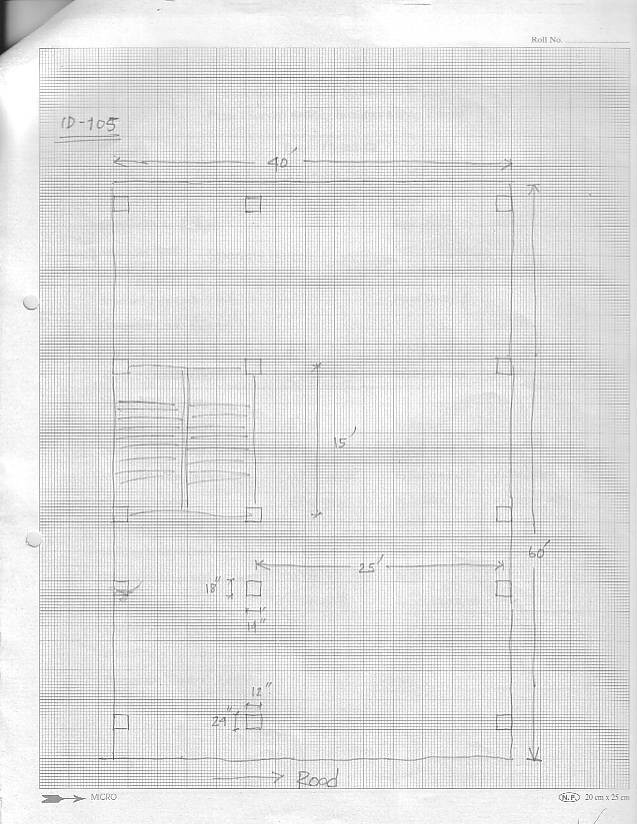 Roll No.
ID-105
40'
15'
60'
25'
18"
14"
12"
24"
Road
MICRO
N.P. 20 cm x 25 cm